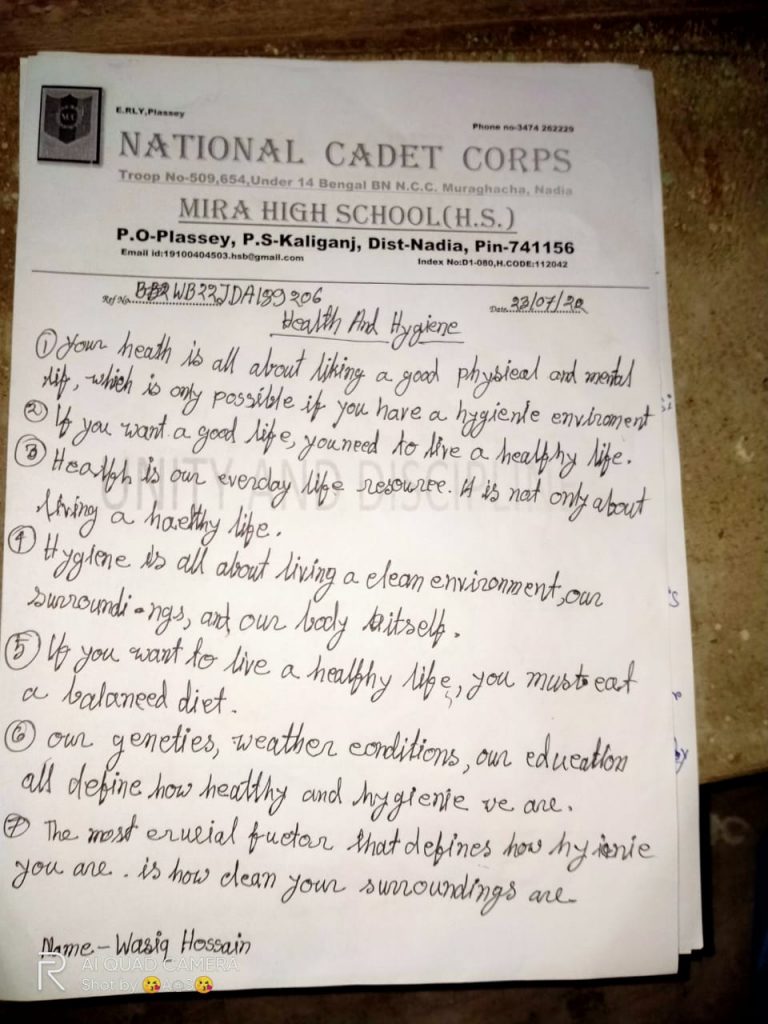 E.RLY,Plassey
Phone no-3474 262229
NATIONAL CADET CORPS
Troop No-509,654,Under 14 Bengal BN N.C.C. Muraghacha, Nadia
MIRA HIGH SCHOOL(H.S.)
P.O-Plassey, P.S-Kaliganj, Dist-Nadia, Pin-741156
Email id:19100404503.hsb@gmail.com
Index No:D1-080,H.CODE:112042
Ref No. WB22JDA199206
Date 23/07/22
Health And Hygiene
① Your heath is all about liking a good physical and mental
lif, which is only possible if you have a hygienie enviroment
② If you want a good life, you need to live a healthy life.
③ Health is our everday life resource. It is not only about
living a haelthy life.
UNITY AND DISCIPLI
④ Hygiene is all about living a clean environment, our
surroundi-ngs, and our body itself.
⑤ If you want to live a healthy life, you must eat
a balanced diet.
⑥ our genetics, weather conditions, our education
all define how healthy and hygienie we are.
⑦ The most crucial fuctor that defines how hyienie
you are. is how clean your surroundings are.
Name - Wasiq Hossain
AI QUAD CAMERA
Shot by 😘A@S😘